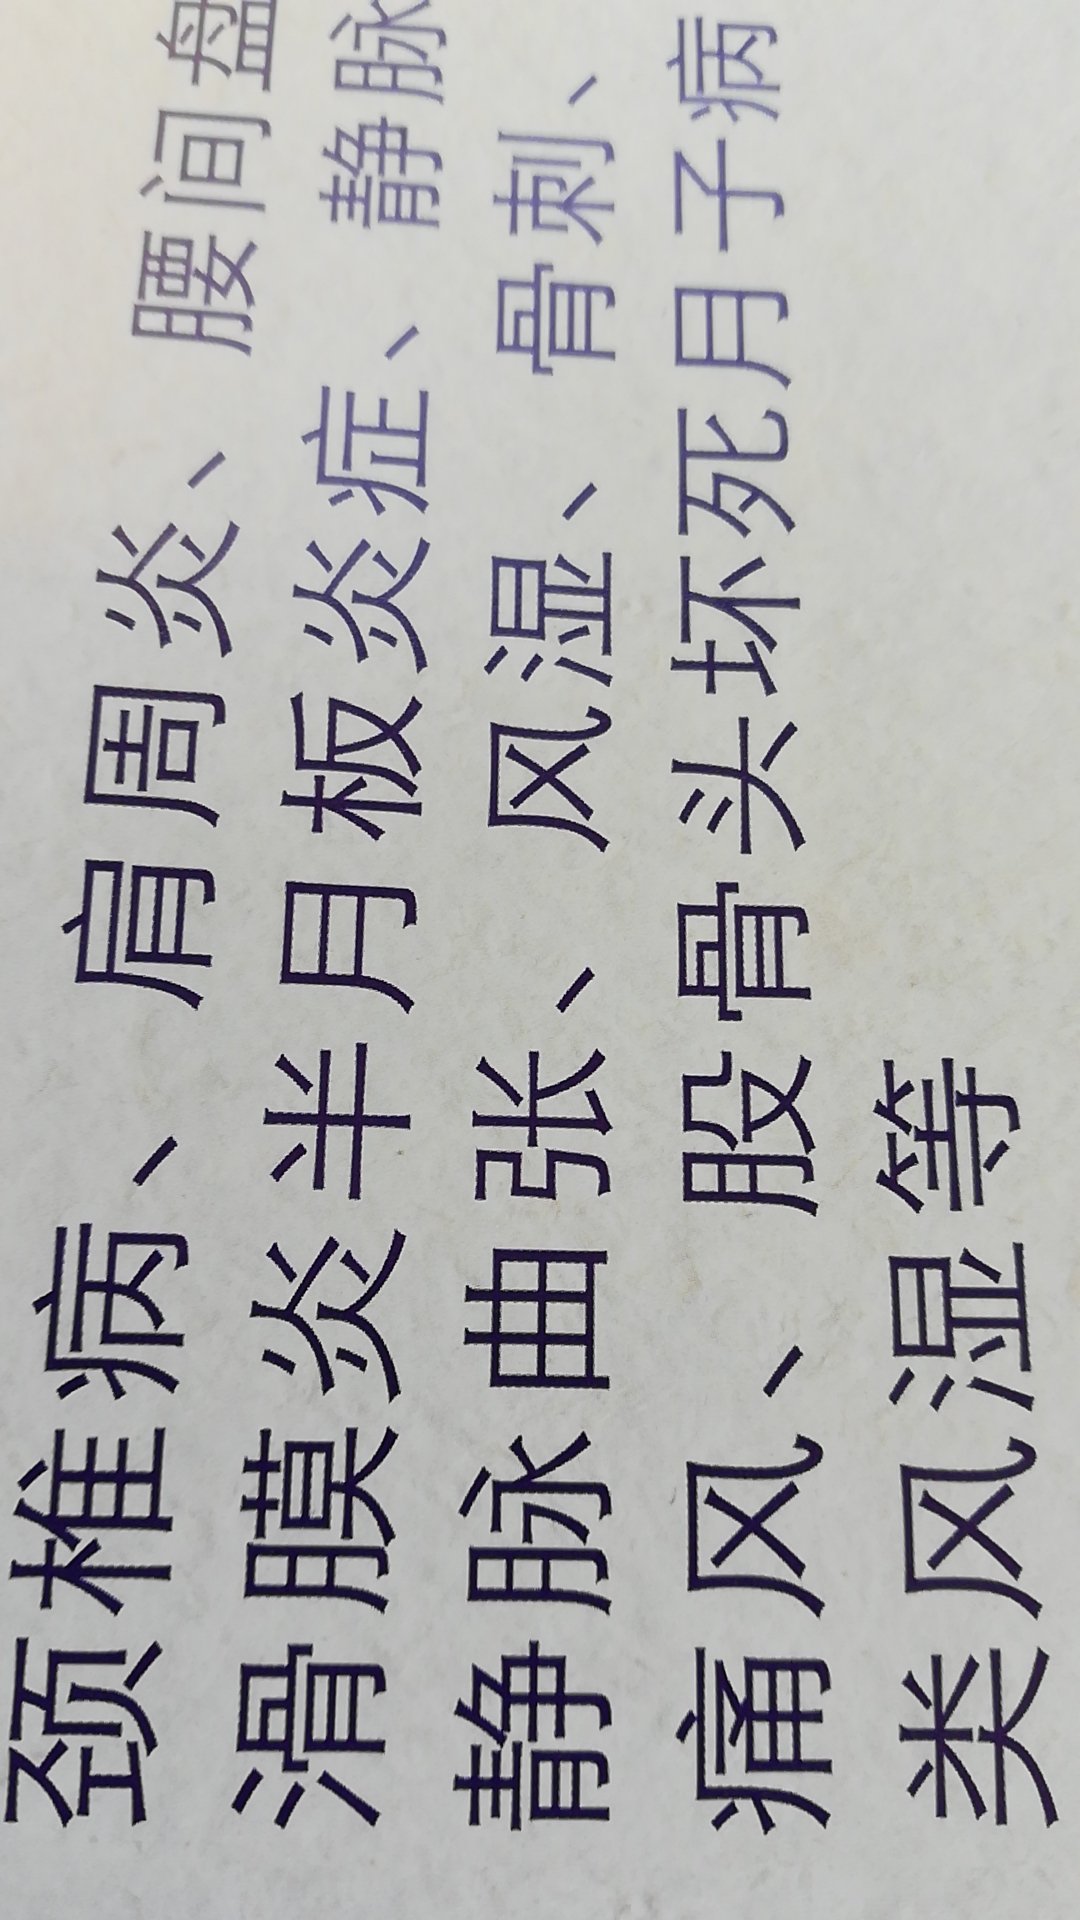 颈椎病、肩周炎、腰间盘
滑膜炎半月板炎症、静脉
静脉曲张、风湿、骨刺、
痛风、股骨头坏死月子病
类风湿等